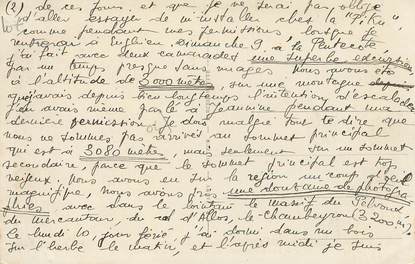 (2) de ces jours et que je ne serai pas obligé
d'aller essayer de m'installer chez la "
comme pendant mes permissions lorsque je
rentrerai à Enghien. Dimanche 9, à la Pentecôte,
j'ai fait avec deux camarades une superbe excursion
par un temps presque sans nuages. Nous avons été
à l'altitude de 3000 mètres, sur une montagne
que j'avais depuis bien longtemps l'intention d'escalader
j'en avais même parlé à Germaine pendant une
dernière permission. Je dois malgré tout te dire que
nous ne sommes pas arrivés au sommet principal
qui est à 3080 mètres, mais seulement sur un sommet
secondaire, parce que le sommet principal est trop
neigeux, nous avons eu sur la région un coup d'œil
magnifique, nous avons pris une douzaine de photogra
phies avec dans le lointain le massif du Pelvoux,
du mercantour, du col d'Allos, le Chambeyron (3200 m).
le lundi 10, jour férié, j'ai dormi dans un bois
sur l'herbe le matin, et l'après midi je suis